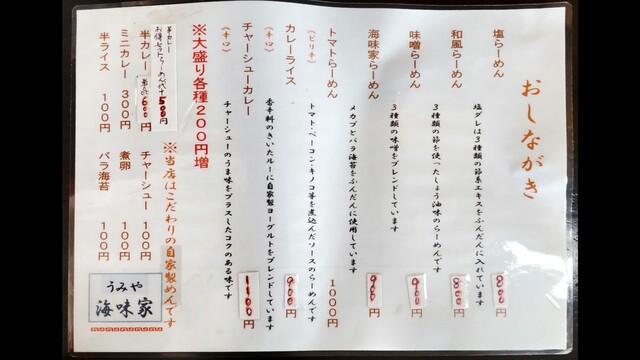 おしながき
塩らーめん 800円
塩ダレは3種類の節系エキスをふんだんに入れています
和風らーめん 800円
3種類の節を使ったしょうゆ味のらーめんです
味噌らーめん 900円
3種類の味噌をブレンドしています
海味家らーめん 900円
メカブとバラ海苔をふんだんに使用しています
トマトらーめん 1000円
(ピリ辛)
トマト・ベーコン・キノコ等を煮込んだソースのらーめんです
カレーライス 900円
(辛口)
香辛料のきいたルーに自家製ヨーグルトをブレンドしています
チャーシューカレー 1100円
(辛口)
チャーシューのうま味をプラスしたコクのある味です
※大盛り各種200円増
※当店はこだわりの自家製めんです
半カレー
お得セットらーめん代+500円
半カレー 単品600円
ミニカレー 300円
半ライス 100円
チャーシュー 100円
煮卵 100円
バラ海苔 100円
うみや
海味家